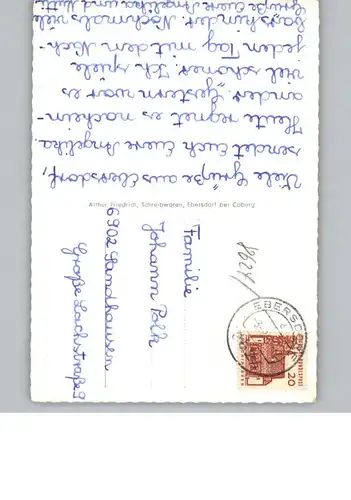 Viele Grüße aus Ebersdorf,
sendet Euch Euere Angelika.
Heute regnet es nochein-
ander. Gestern war es
viel schöner. Ich spiele
jeden Tag mit dem Nach-
barskinder. Nochmals viele
Grüße Euere Angelika und Mutti
Arthur Friedrich, Schreibwaren, Ebersdorf bei Coburg
Familie
Johann Polk
6902 Sandhausen
Große Lachstraße 9
EBERSDO
20